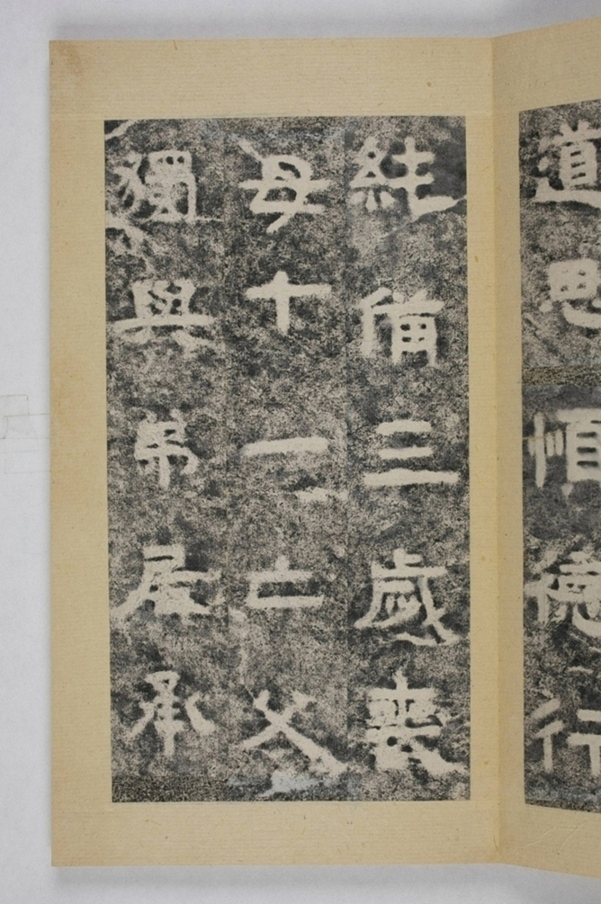 道思德行
純備三歲喪
母十一亡父
獨與弟居承